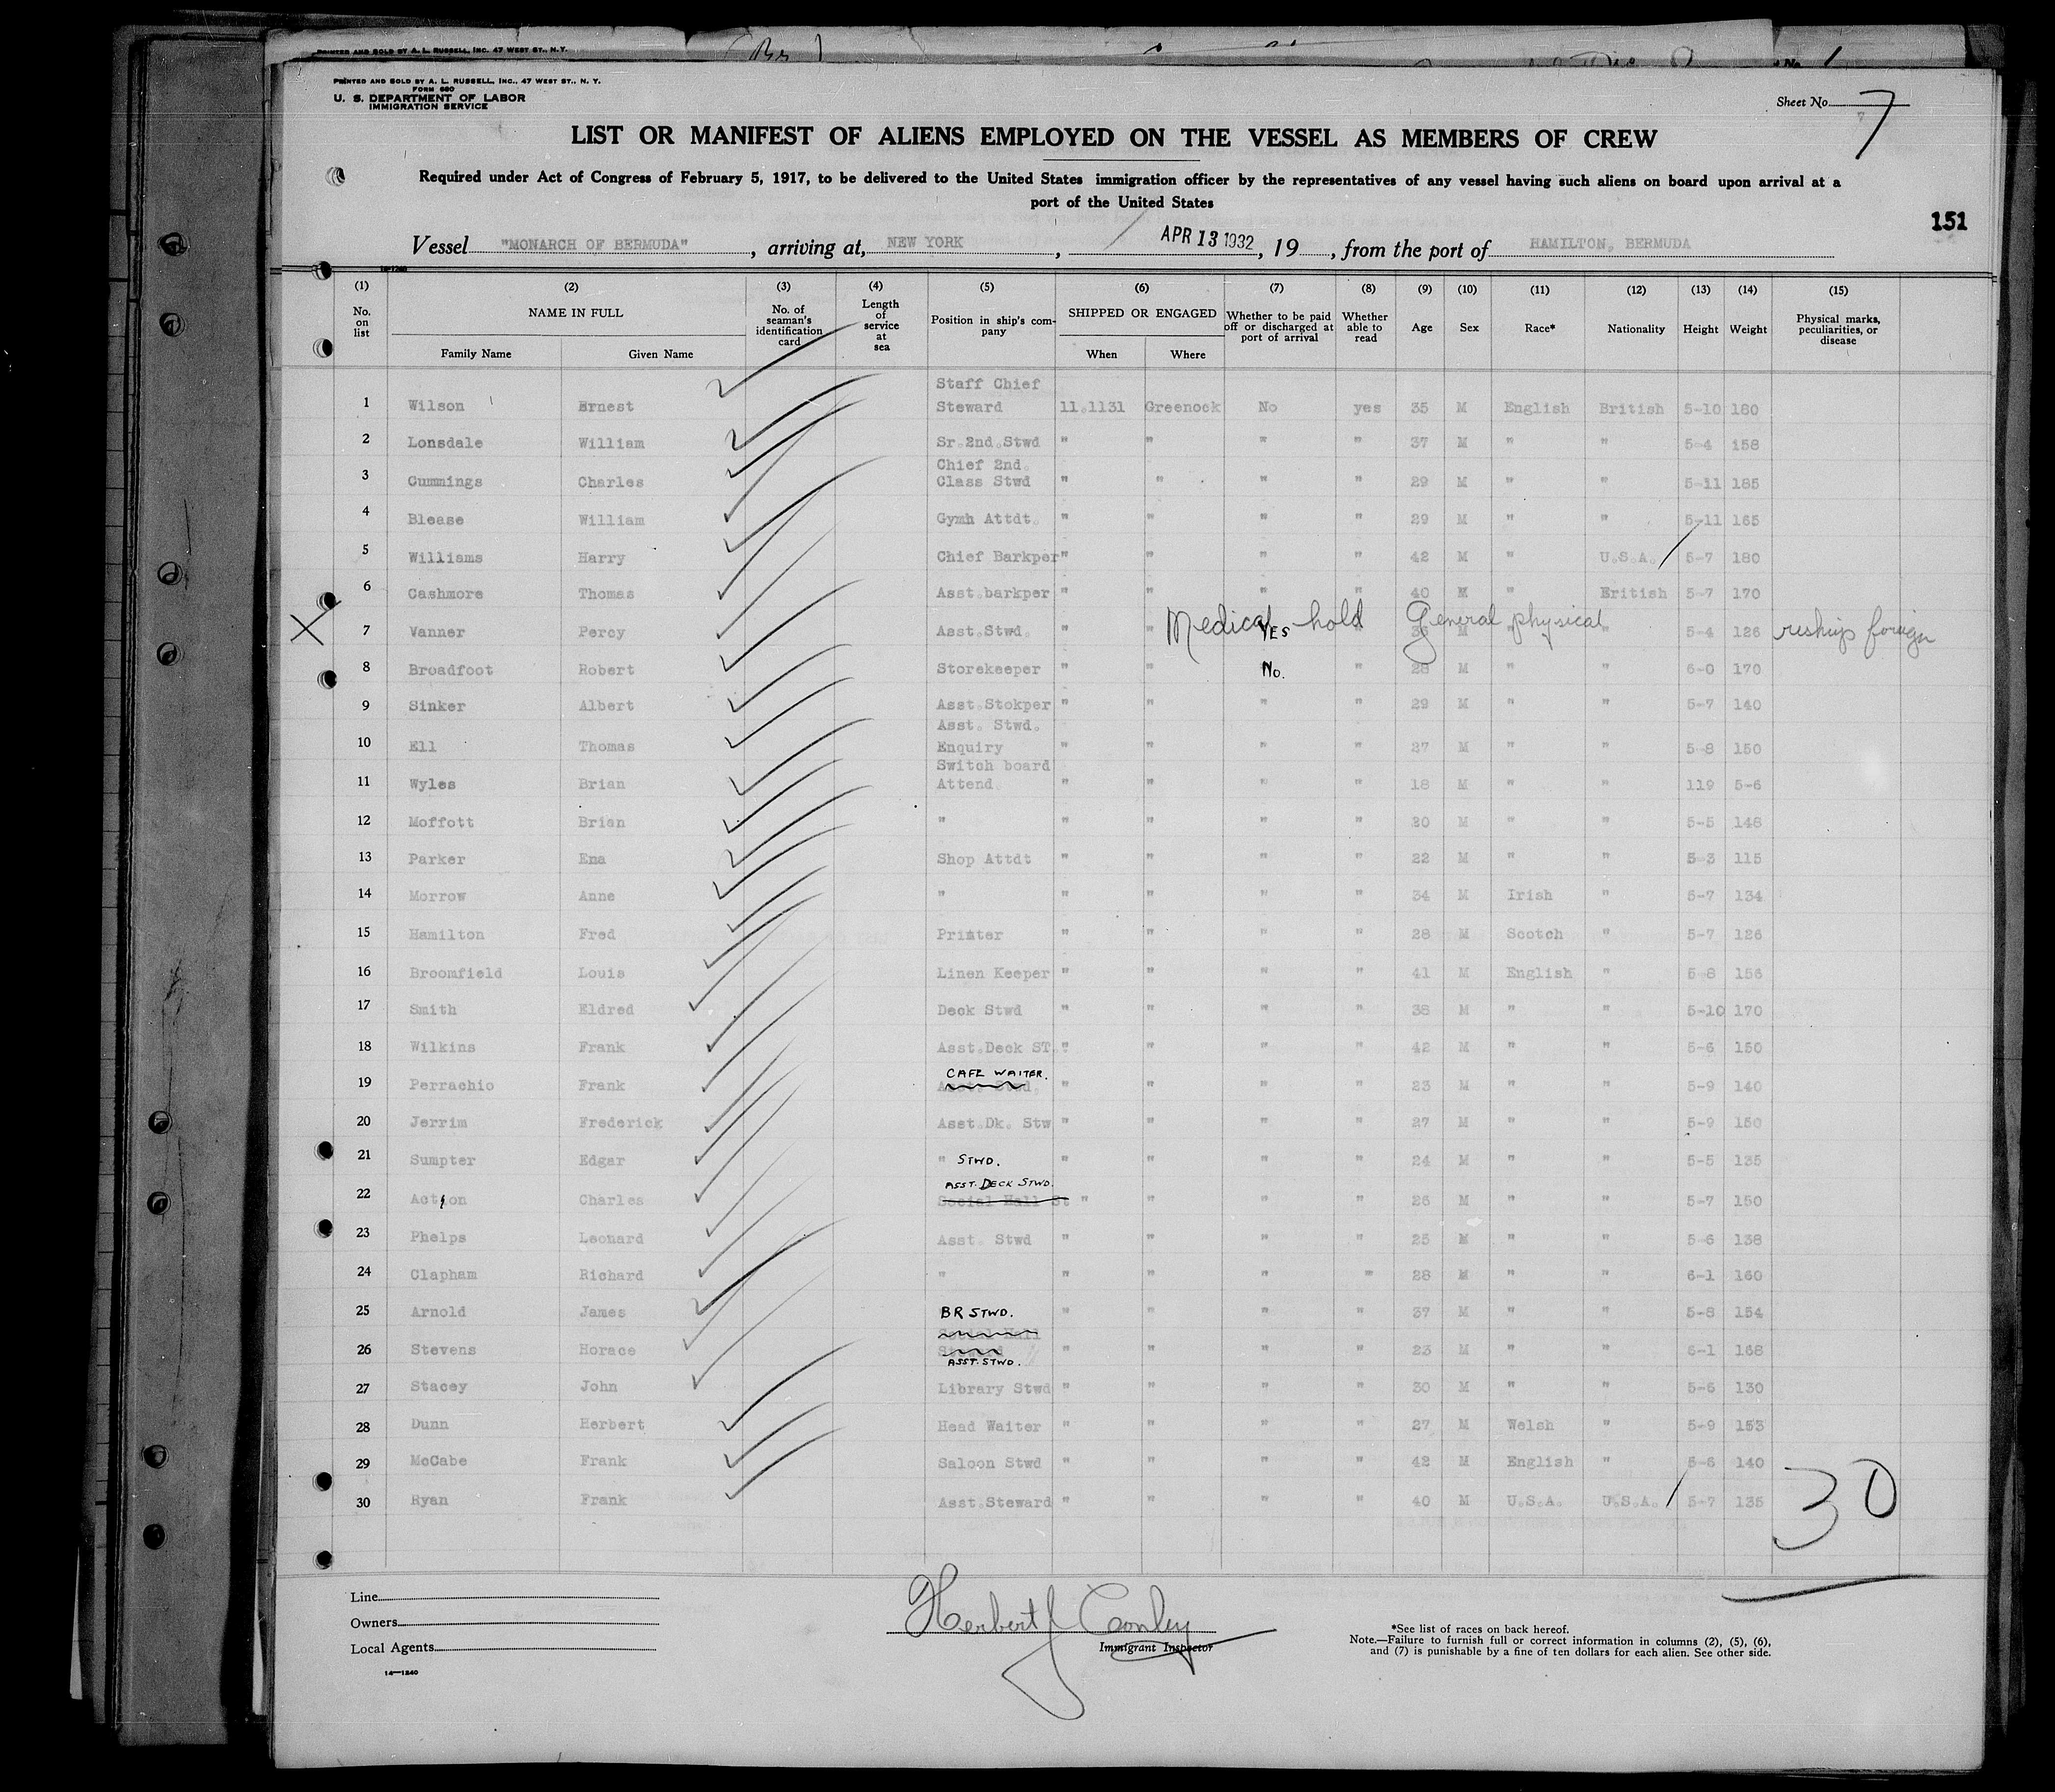 PRINTED AND SOLD BY A. L. RUSSELL, INC. 47 WEST ST., N.Y.
PRINTED AND SOLD BY A. L. RUSSELL, INC., 47 WEST ST., N. Y.
FORM 680
U. S. DEPARTMENT OF LABOR
IMMIGRATION SERVICE
Sheet No. 7
LIST OR MANIFEST OF ALIENS EMPLOYED ON THE VESSEL AS MEMBERS OF CREW
Required under Act of Congress of February 5, 1917, to be delivered to the United States immigration officer by the representatives of any vessel having such aliens on board upon arrival at a
port of the United States
151
Vessel "MONARCH OF BERMUDA", arriving at, NEW YORK, APR 13 1932, 19, from the port of HAMILTON, BERMUDA
14-1240
(1) No. on list (2) NAME IN FULL Family Name Given Name (3) No. of seaman's identification card (4) Length of service at sea (5) Position in ship's company (6) SHIPPED OR ENGAGED When Where (7) Whether to be paid off or discharged at port of arrival (8) Whether able to read (9) Age (10) Sex (11) Race* (12) Nationality (13) Height (14) Weight (15) Physical marks, peculiarities, or disease
1 Wilson Ernest Staff Chief Steward 11.1131 Greenock No yes 35 M English British 5-10 180
2 Lonsdale William Sr.2nd.Stwd " " " " 37 M " " 5-4 158
3 Cummings Charles Chief 2nd. Class Stwd " " " " 29 M " " 5-11 185
4 Blease William Gymh Attdt. " " " " 29 M " " 5-11 165
5 Williams Harry Chief Barkper " " " " 42 M " U.S.A. 5-7 180
6 Cashmore Thomas Asst.barkper " " " " 40 M " British 5-7 170
X 7 Vanner Percy Asst.Stwd. " " Medical hold YES " General physical M " " 5-4 126 reship foreign
8 Broadfoot Robert Storekeeper " " No. " 28 M " " 6-0 170
9 Sinker Albert Asst.Stokper " " " " 29 M " " 5-7 140
10 Ell Thomas Asst. Stwd. Enquiry " " " " 27 M " " 5-8 150
11 Wyles Brian Switch board Attend. " " " " 18 M " " 119 5-6
12 Moffott Brian " " " " " 20 M " " 5-5 148
13 Parker Ena Shop Attdt " " " " 22 M " " 5-3 115
14 Morrow Anne " " " " " 34 M Irish " 5-7 134
15 Hamilton Fred Printer " " " " 28 M Scotch " 5-7 126
16 Broomfield Louis Linen Keeper " " " " 41 M English " 5-8 156
17 Smith Eldred Deck Stwd " " " " 38 M " " 5-10 170
18 Wilkins Frank Asst.Deck ST. " " " " 42 M " " 5-6 150
19 Perrachio Frank CAFE WAITER. Asst. Stwd. " " " " 23 M " " 5-9 140
20 Jerrim Frederick Asst.Dk. Stw " " " " 27 M " " 5-9 150
21 Sumpter Edgar " STWD. " " " " 24 M " " 5-5 135
22 Acton Charles ASST. DECK STWD. Social Hall St " " " " 26 M " " 5-7 150
23 Phelps Leonard Asst. Stwd " " " " 25 M " " 5-6 138
24 Clapham Richard " " " " " 28 M " " 6-1 160
25 Arnold James BR STWD. " " " " 37 M " " 5-8 154
26 Stevens Horace Social Hall Steward ASST. STWD. " " " " 23 M " " 6-1 168
27 Stacey John Library Stwd " " " " 30 M " " 5-6 130
28 Dunn Herbert Head Waiter " " " " 27 M Welsh " 5-9 153
29 McCabe Frank Saloon Stwd " " " " 42 M English " 5-6 140
30 Ryan Frank Asst.Steward " " " " 40 M U.S.A. U.S.A. 5-7 135
30
Line
Owners
Local Agents
14-1240
Herbert J Conley
Immigrant Inspector
*See list of races on back hereof.
Note.—Failure to furnish full or correct information in columns (2), (5), (6),
and (7) is punishable by a fine of ten dollars for each alien. See other side.